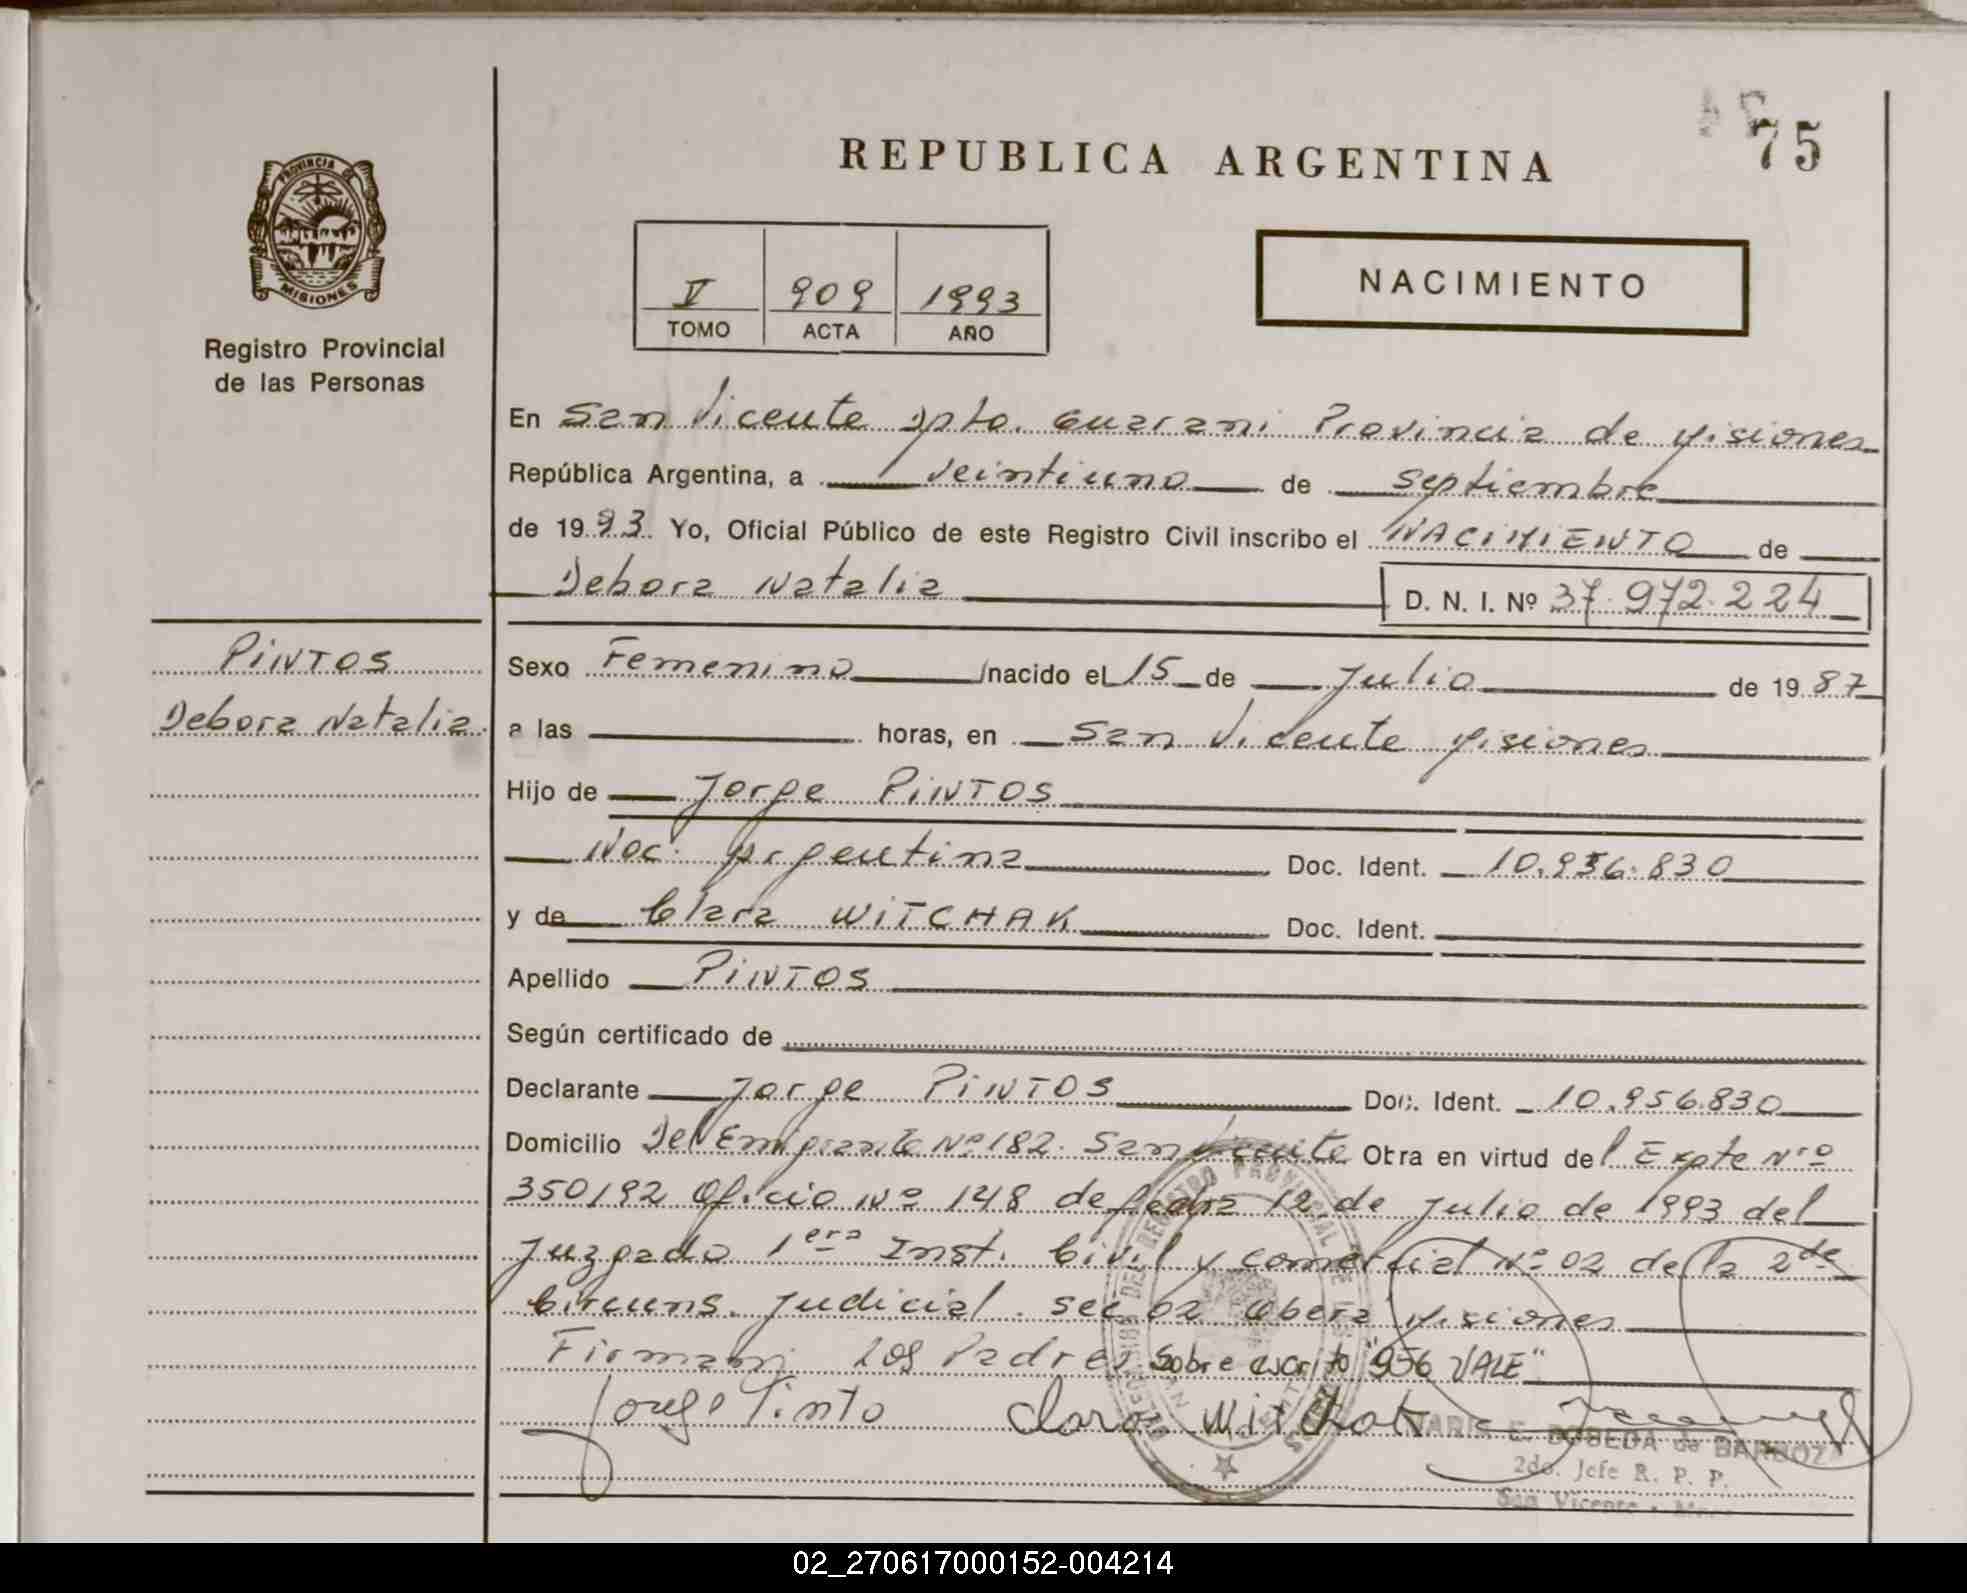 75
REPUBLICA ARGENTINA
PROVINCIA DE
MISIONES
Registro Provincial
de las Personas
V 909 1993
TOMO ACTA AÑO
NACIMIENTO
En San Vicente Dpto. Guarani Provincia de Misiones
República Argentina, a veintiuno de septiembre
de 1993. Yo, Oficial Público de este Registro Civil inscribo el NACIMIENTO de
Debora Natalia D. N. I. Nº 37.972.224
PINTOS
Debora Natalia.
Sexo Femenino nacido el 15 de Julio de 1987
a las horas, en San Vicente Misiones
Hijo de Jorge PINTOS
Nac. Argentina Doc. Ident. 10.956.830
y de Clara WITCHAK Doc. Ident.
Apellido PINTOS
Según certificado de
Declarante Jorge PINTOS Doc. Ident. 10.956.830
Domicilio Del Emigrante Nº 182. San Vicente Obra en virtud del Expte Nro
350/92 Oficio Nº 148 de fecha 12 de Julio de 1993 del
Juzgado 1era Inst. Civil y comercial Nº 02 de la 2da
Circuns. Judicial sec 02 Obera Misiones
Firman: los Padres. Sobre escrito "956 VALE"
Jorge Pinto Clara Witchak
E. BOBEDA de BARBOZA
2do. Jefe R. P. P.
San Vicente - Mnes.
02_270617000152-004214